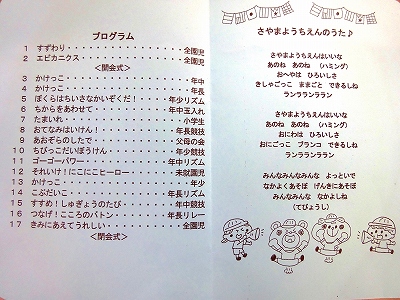 プログラム
1 すずわり・・・・・・・・・・・・全園児
2 エビカニクス・・・・・・・・・・全園児
<開会式>
3 かけっこ・・・・・・・・・・・・年中
4 かけっこ・・・・・・・・・・・・年長
5 ぼくらはちいさなかいぞくだ!・・年少リズム
6 ちからをあわせて・・・・・・・年中玉入れ
7 たまいれ・・・・・・・・・・・・小学生
8 おてなみはいけん!・・・・・・年長競技
9 あおぞらのしたで・・・・・・・父母の会
10 ちびっこだいぼうけん・・・・・年少競技
11 ゴーゴーパワー・・・・・・・・年中リズム
12 それいけ!にこにこヒーロー・・未就園児
13 かけっこ・・・・・・・・・・・・年少
14 こぶだいこ・・・・・・・・・・年長リズム
15 すすめ!しゅぎょうのたび・・・年中競技
16 つなげ!こころのバトン・・・・年長リレー
17 きみにあえてうれしい・・・・・・全園児
<閉会式>
さやまようちえんのうた♪
さやまようちえんはいいな
あのね あのね (ハミング)
おへやは ひろいしさ
きしゃごっこ ままごと できるしね
ランララランラン
さやまようちえんはいいな
あのね あのね (ハミング)
おにわは ひろいしさ
おにごっこ ブランコ できるしね
ランララランラン
みんなみんなみんな よっといで
なかよくあそぼ げんきにあそぼ
みんなみんな なかよしね
(てびょうし)